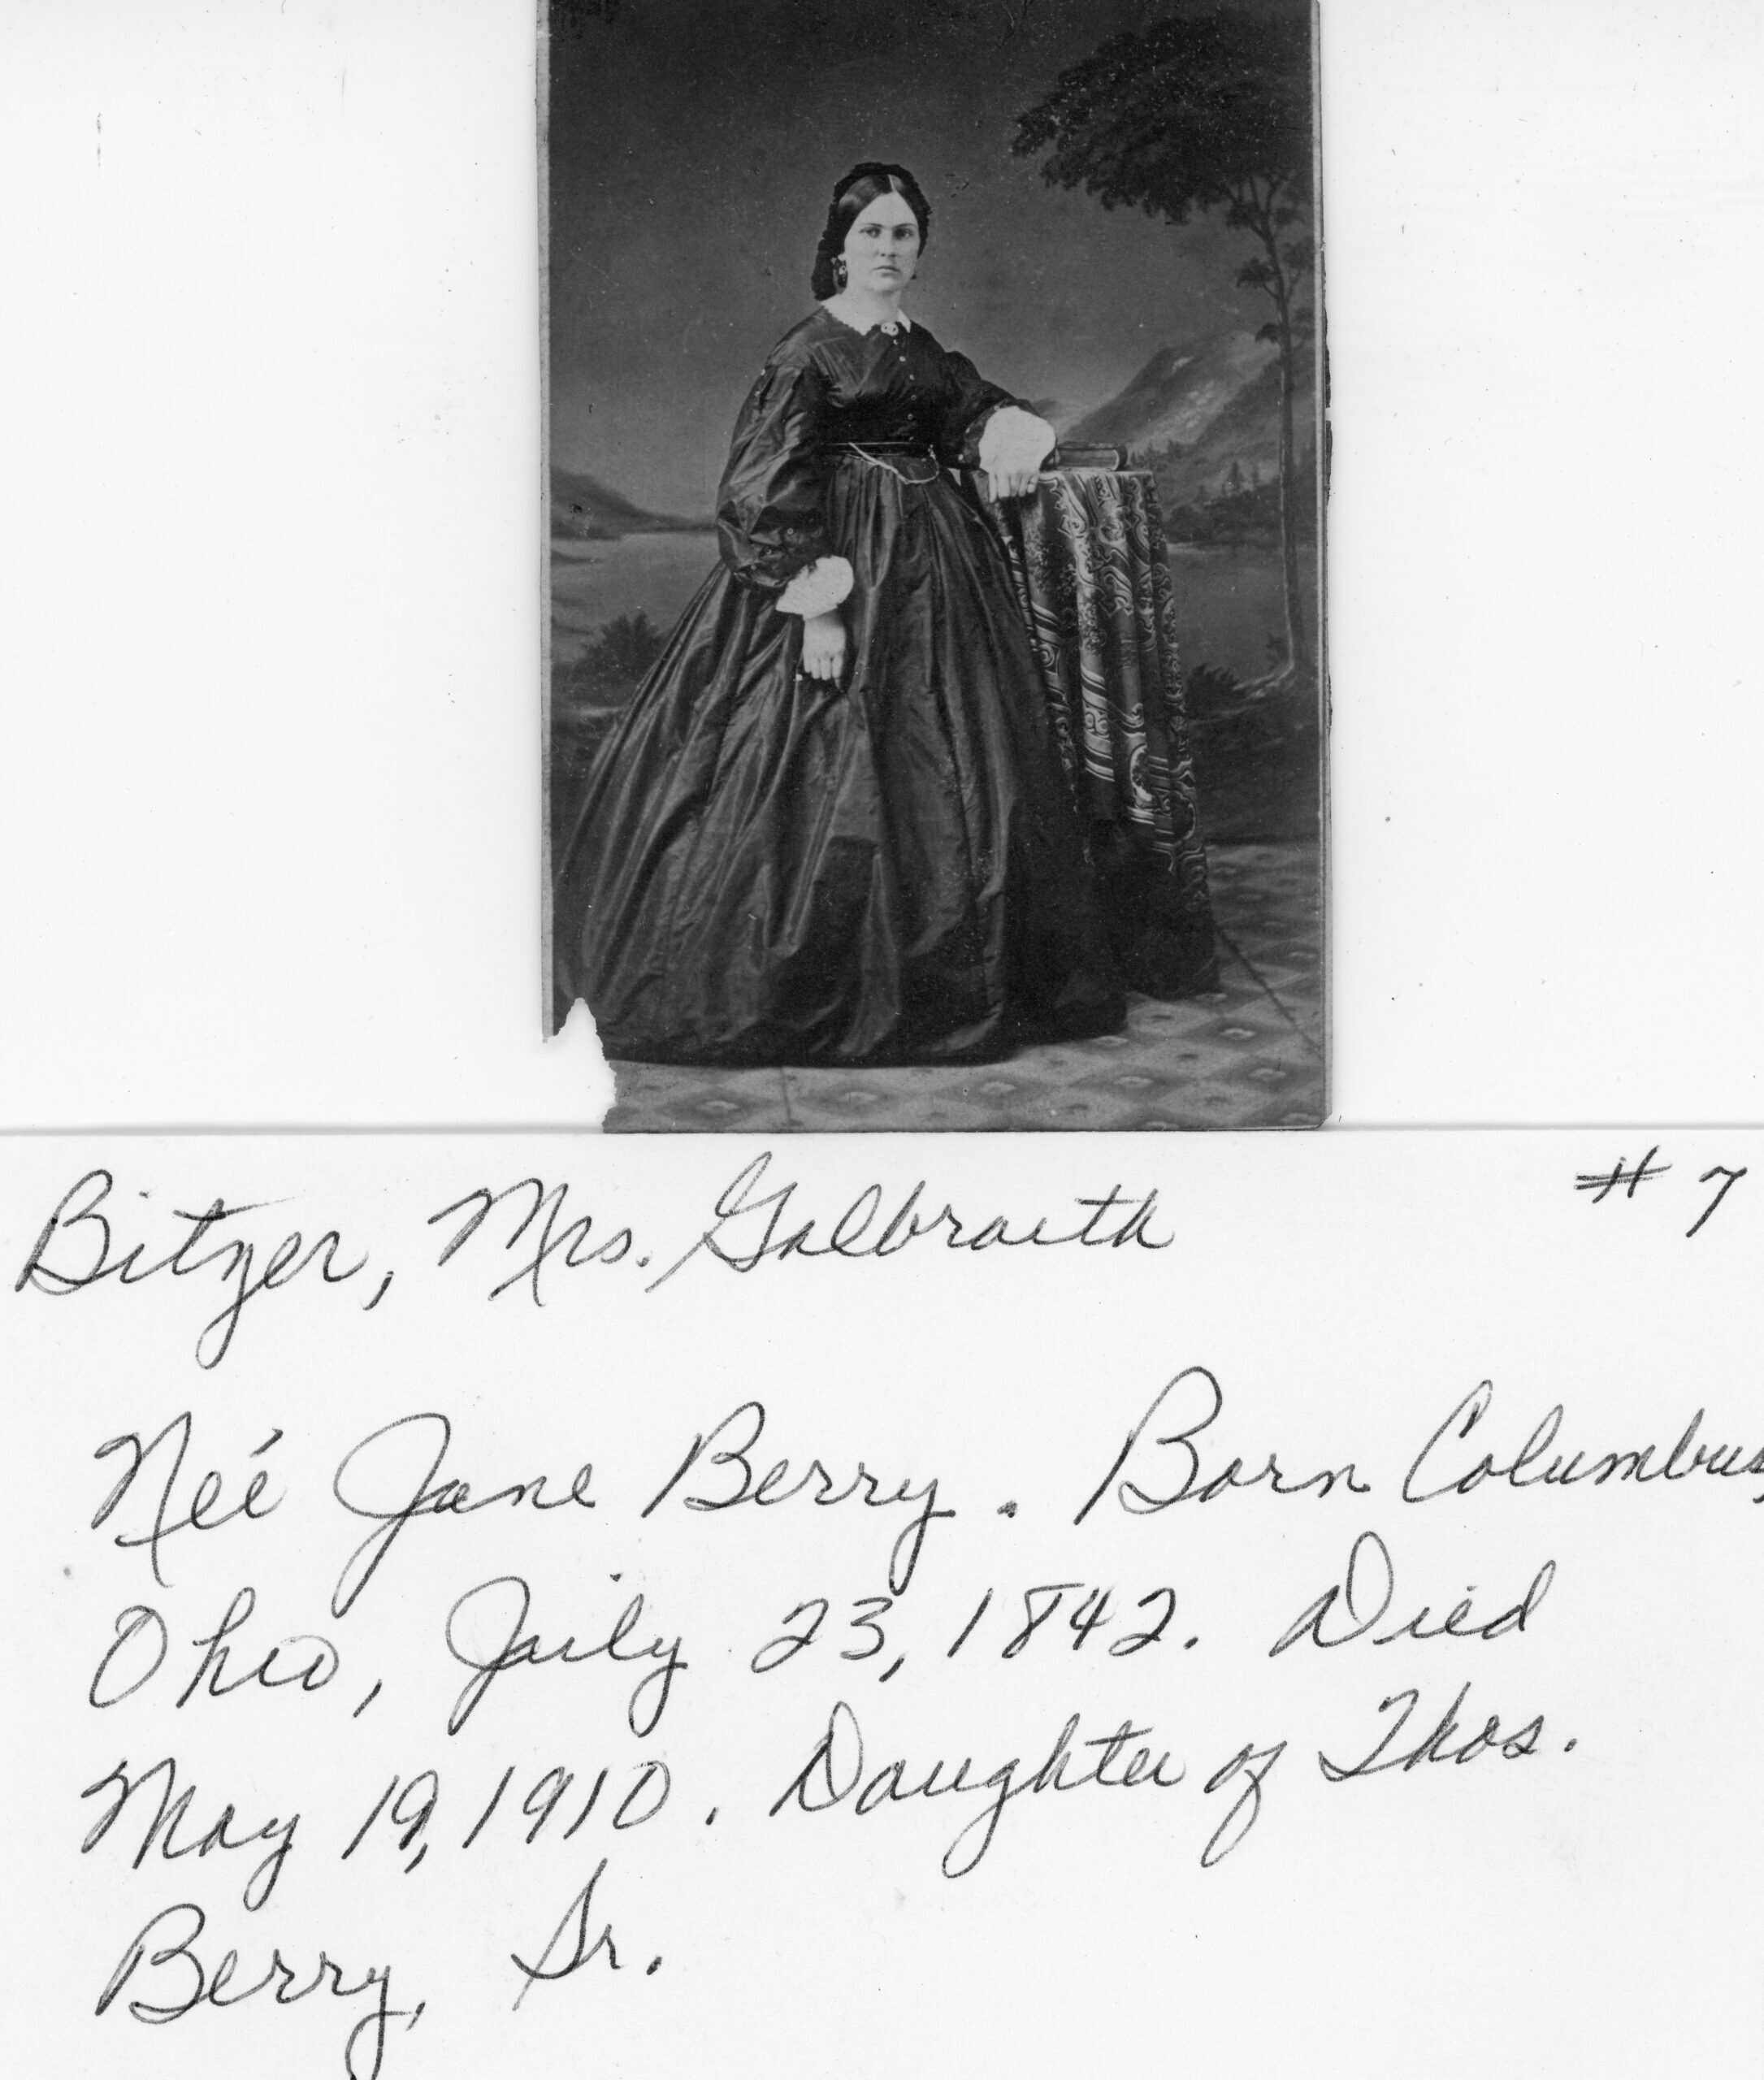 Bitzer, Mrs. Galbraith #7
Neé Jane Berry. Born Columbus,
Ohio, July 23, 1842. Died
May 19, 1910. Daughter of Thos.
Berry, Sr.